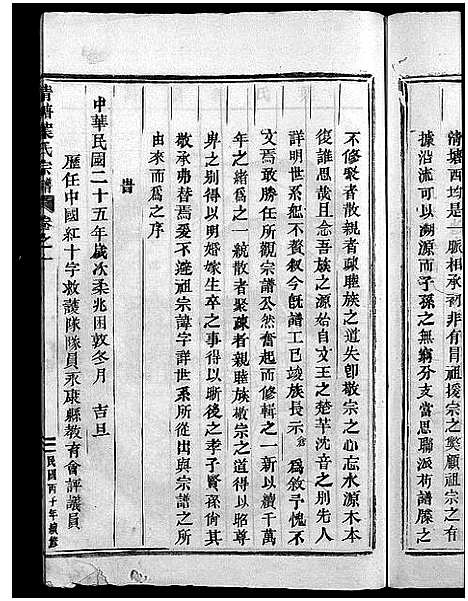 清塘西均是一脈相承初非有冒祖援宗之獎顧祖宗之有
據沿流可以溯源而子孫之無窮分支當思聯派術譜牒之
不修聚者散親者疎睦族之道失卽敬宗之心忘水源木本
復誰思哉且念吾族之源始自文王之楚芈沈音之别先人
詳明世系恕不贅叙今既譜工已竣族長示 爲敘予愧不
文焉敢勝任所觀宗譜公然奮起而修輯之一新以續千萬
年之緒爲之一統散者聚疎者親睦族敬宗之道得以昭尊
卑之别得以明婚嫁生卒之事得以晰後之孝子賢孫尙其
敬承弗替焉爰不避祖宗諱字詳世系所從出與宗譜之所
由來而爲之序
旹
中華民國二十五年歲次柔兆困敦冬月 吉旦
歷任中國紅十字救護隊隊員永康縣教育會評議員
清塘葉氏宗譜 卷之一
民國丙子年續修